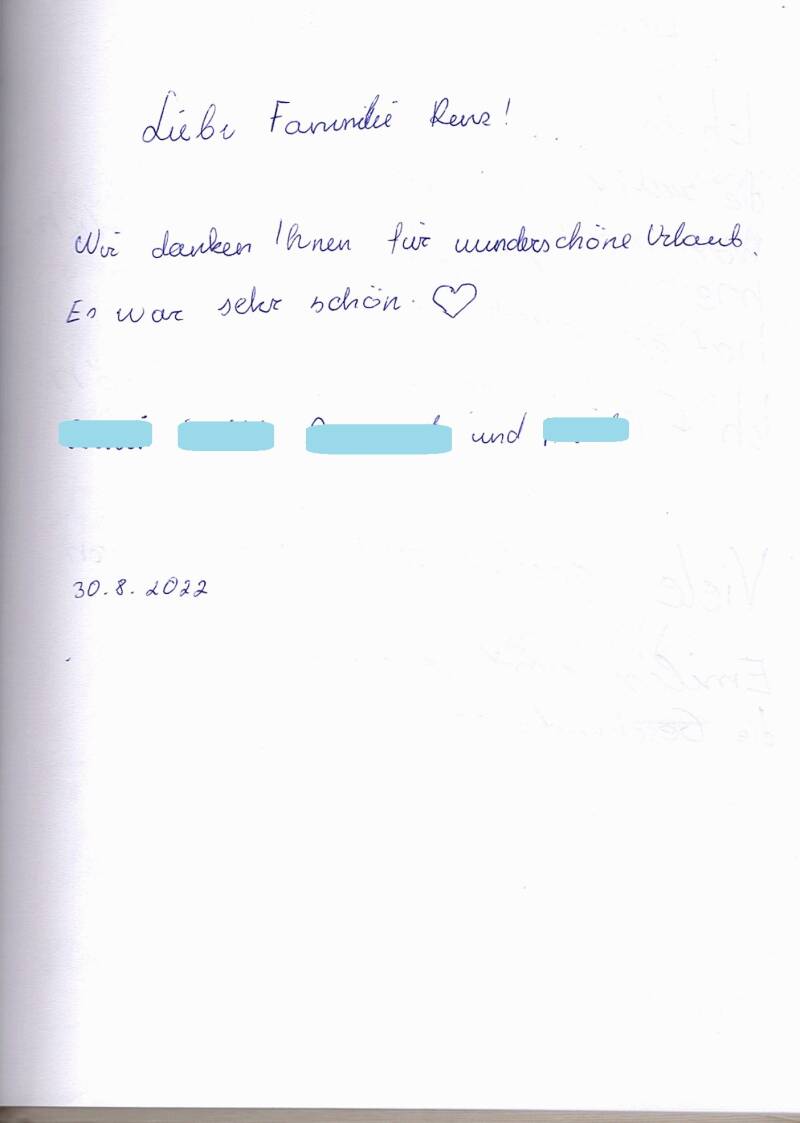 Liebe Familie Renz!
Wir danken Ihnen für wunderschöne Urlaub.
Es war sehr schön. ♡
und
30.8.2022